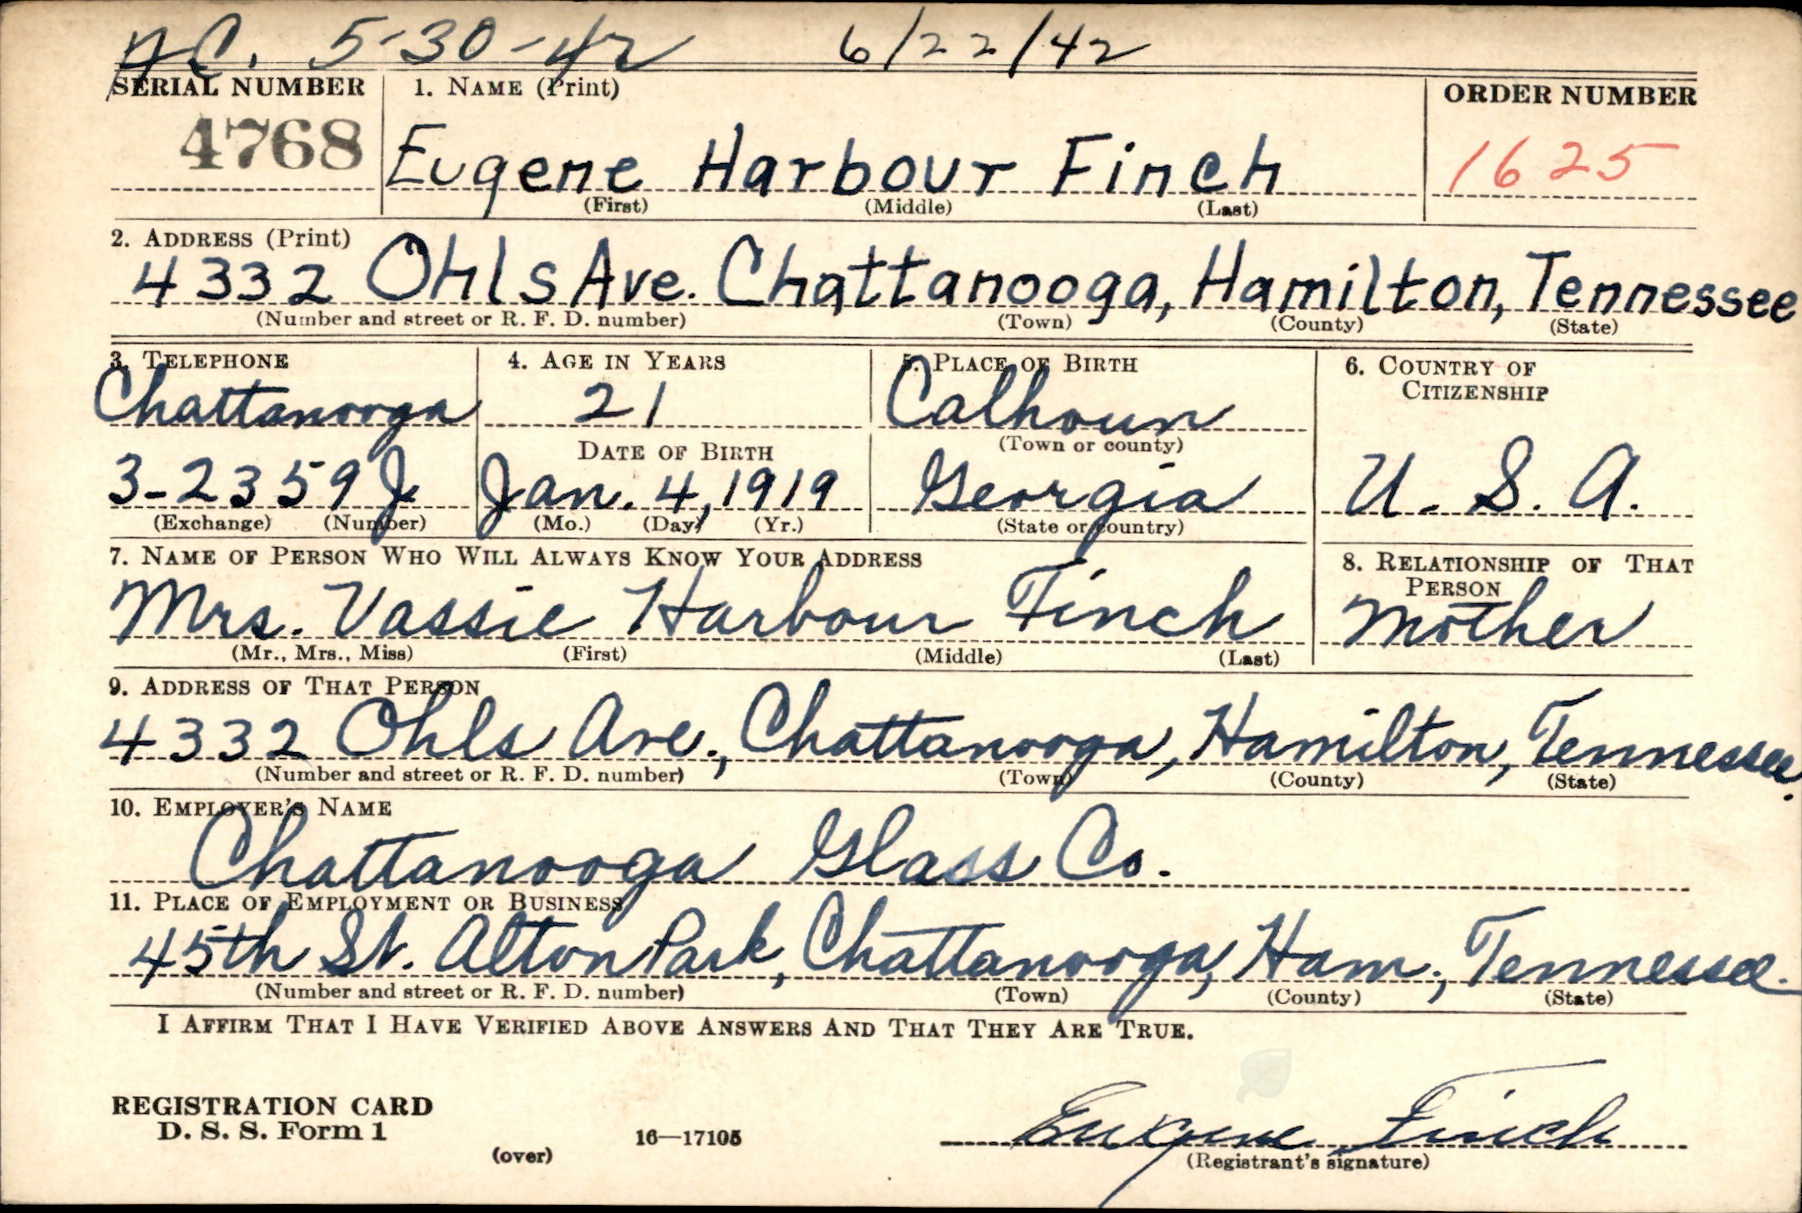 AC. 5-30-42 6/22/42
SERIAL NUMBER 1. NAME (Print) ORDER NUMBER
4768 Eugene Harbour Finch 1625
(First) (Middle) (Last)
2. ADDRESS (Print)
4332 Ohls Ave. Chattanooga, Hamilton, Tennessee
(Number and street or R. F. D. number) (Town) (County) (State)
3. TELEPHONE 4. AGE IN YEARS 5. PLACE OF BIRTH 6. COUNTRY OF CITIZENSHIP
Chattanooga 21 Calhoun
DATE OF BIRTH (Town or county)
3-2359 J Jan. 4, 1919 Georgia U. S. A.
(Exchange) (Number) (Mo.) (Day) (Yr.) (State or country)
7. NAME OF PERSON WHO WILL ALWAYS KNOW YOUR ADDRESS 8. RELATIONSHIP OF THAT PERSON
Mrs. Vassie Harbour Finch Mother
(Mr., Mrs., Miss) (First) (Middle) (Last)
9. ADDRESS OF THAT PERSON
4332 Ohls Ave., Chattanooga, Hamilton, Tennessee.
(Number and street or R. F. D. number) (Town) (County) (State)
10. EMPLOYER'S NAME
Chattanooga Glass Co.
11. PLACE OF EMPLOYMENT OR BUSINESS
45th St. Alton Park, Chattanooga, Ham., Tennessee.
(Number and street or R. F. D. number) (Town) (County) (State)
I AFFIRM THAT I HAVE VERIFIED ABOVE ANSWERS AND THAT THEY ARE TRUE.
REGISTRATION CARD
D. S. S. Form 1
(over) 16—17105
Eugene Finch
(Registrant's signature)